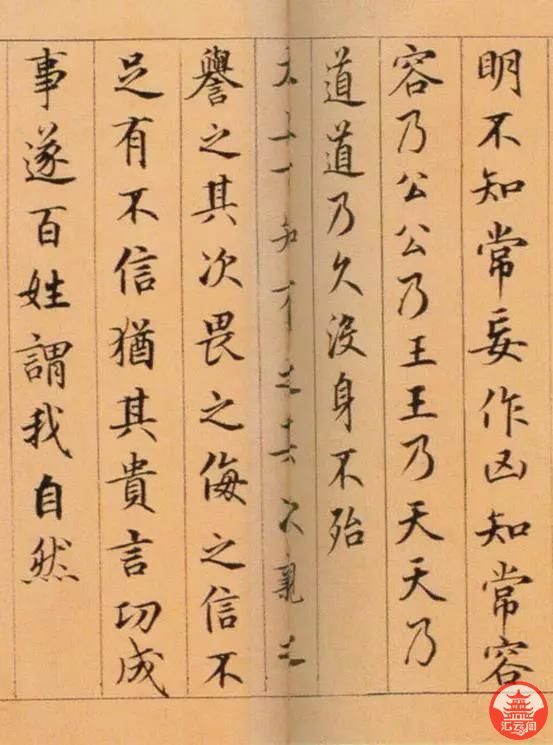 明不知常妄作凶知常容
容乃公公乃王王乃天天乃
道道乃久没身不殆
上下知有之其次親之
譽之其次畏之侮之信不
足有不信猶其貴言功成
事遂百姓謂我自然
汇云阁